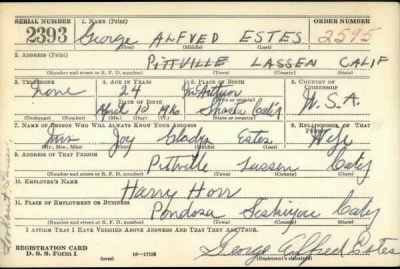 SERIAL NUMBER 1. NAME (Print) ORDER NUMBER
2393 George ALFRED ESTES 2595
(First) (Middle) (Last)
2. ADDRESS (Print)
PITTVILLE LASSEN CALIF
(Number and street or R. F. D. number) (Town) (County) (State)
3. TELEPHONE 4. AGE IN YEARS 5. PLACE OF BIRTH 6. COUNTRY OF CITIZENSHIP
none 24 McArthur
DATE OF BIRTH (Town or county)
April 10 1916 Shasta Calif U.S.A.
(Exchange) (Number) (Mo.) (Day) (Yr.) (State or country)
7. NAME OF PERSON WHO WILL ALWAYS KNOW YOUR ADDRESS 8. RELATIONSHIP OF THAT PERSON
Mrs Joy Gladys Estes Wife
(Mr., Mrs., Miss) (First) (Middle) (Last)
9. ADDRESS OF THAT PERSON
Pittville Lassen Calif
(Number and street or R. F. D. number) (Town) (County) (State)
10. EMPLOYER'S NAME
Harry Horr
11. PLACE OF EMPLOYMENT OR BUSINESS
Pondosa Siskiyou Calif
(Number and street or R. F. D. number) (Town) (County) (State)
I AFFIRM THAT I HAVE VERIFIED ABOVE ANSWERS AND THAT THEY ARE TRUE.
REGISTRATION CARD
D. S. S. Form 1 (over) 16—17105 George Alfred Estes
(Registrant's signature)